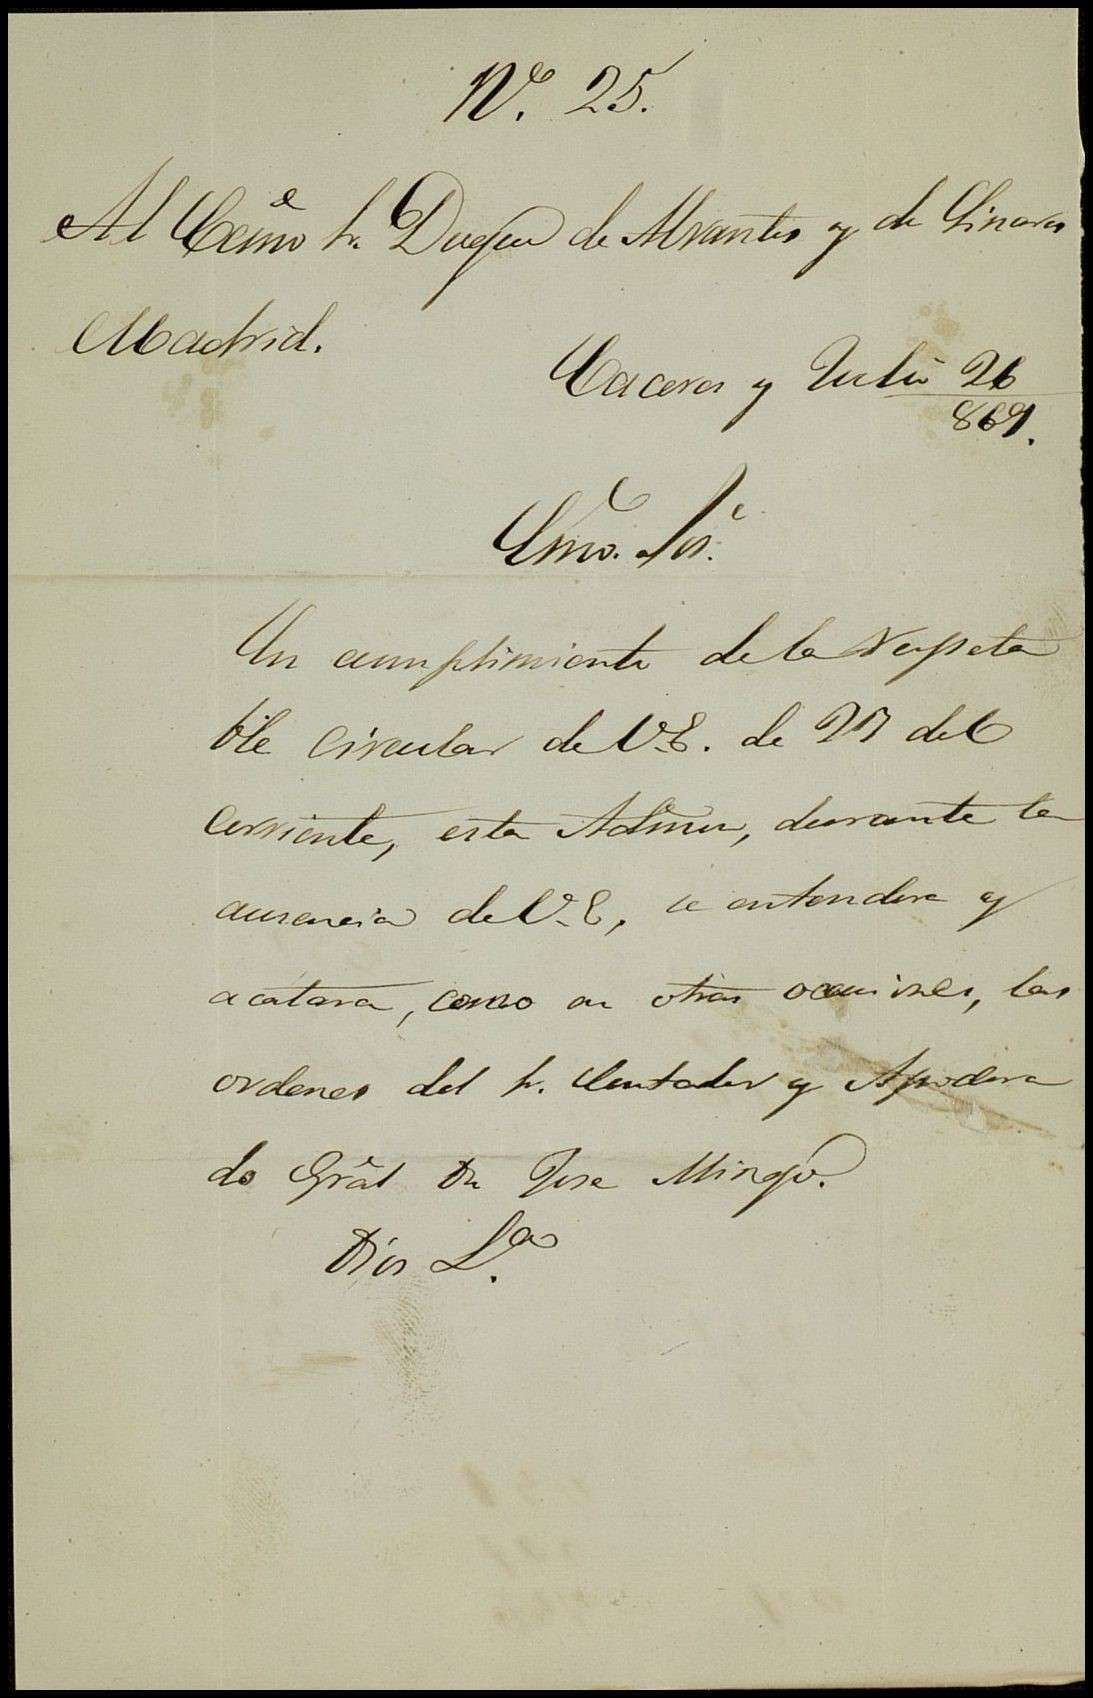 Nº. 25.
Al Excmo Sr. Duque de Abrantes y de Linares
Madrid.
Caceres y Julio 26
869.
Exmo. Sor.
En cumplimiento de la respeta
ble circular de V.E. de del
corriente, esta Admon, durante la
ausencia de V.E, se entendera y
acatara, como en otras ocasiones, las
ordenes del Sr. Contador y Apodera
do Gral Dn Jose Mingo.
Dios